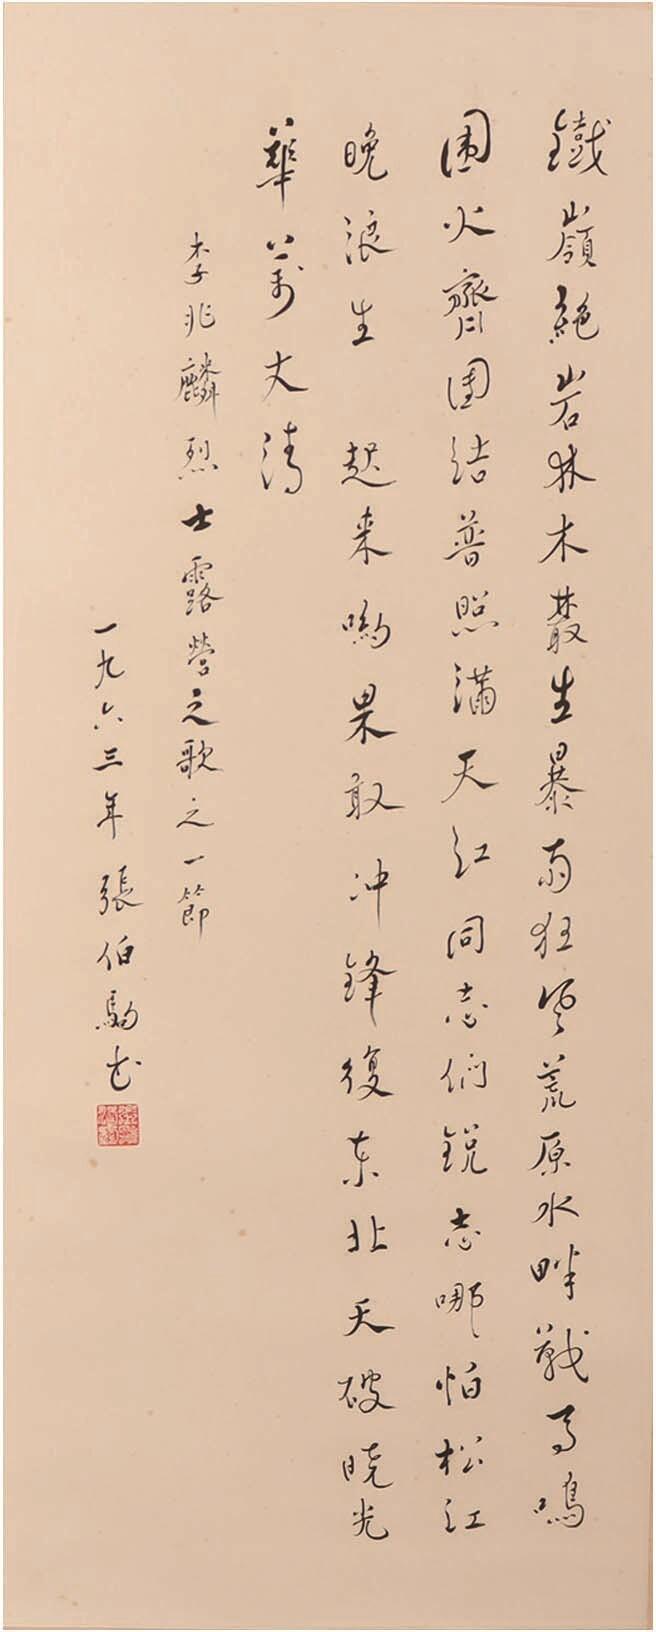 鐵嶺絕岩林木叢生暴雨狂風荒原水畔戰馬鳴
圍火齊團結普照滿天紅同志们銳志哪怕松江
晚浪生 起来喲果敢冲鋒復东北天破曉光
華萬丈濤
李兆麟烈士露營之歌之一節
一九六三年張伯駒书